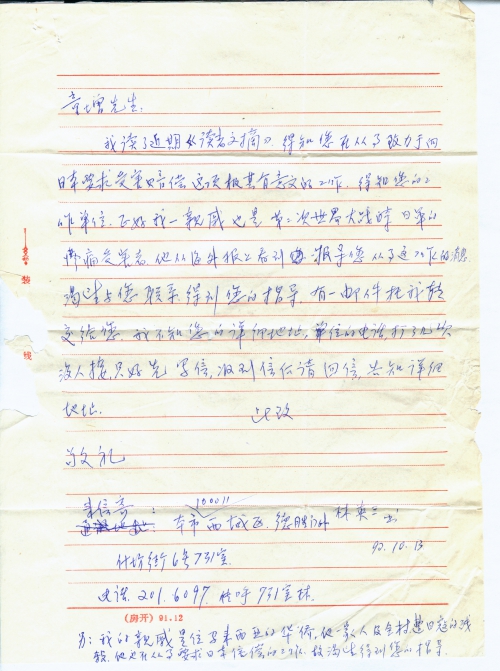 童增先生:
我读了近期《读者文摘》, 得知您在从事致力于向
日本要求受害赔偿这项极其有意义的工作, 得知您的工
作单位. 正好我一亲戚也是第二次世界大战时日军的
受害者 他从海外报上看到 报导您从事这工作的消息
渴望与您联系得到您的指导. 有一邮件托我转
交给您. 我不知您的详细地址, 单位的电话, 打了几次
没人接, 只好先写信, 收到信后请回信, 告知详细
地址. 此致
敬礼
装
线
来信寄: 100011
本市西城区. 德胜门外 林 书
什坊街6号731室. 92.10.13
电话. 201.6097. 传呼731室林
(房开) 91.12
另: 我的亲戚是住马来西亚的华侨, 他一家人及全村遭日寇的残
杀. 他也在从事要求日本赔偿的工作. 故渴望得到您的指导.